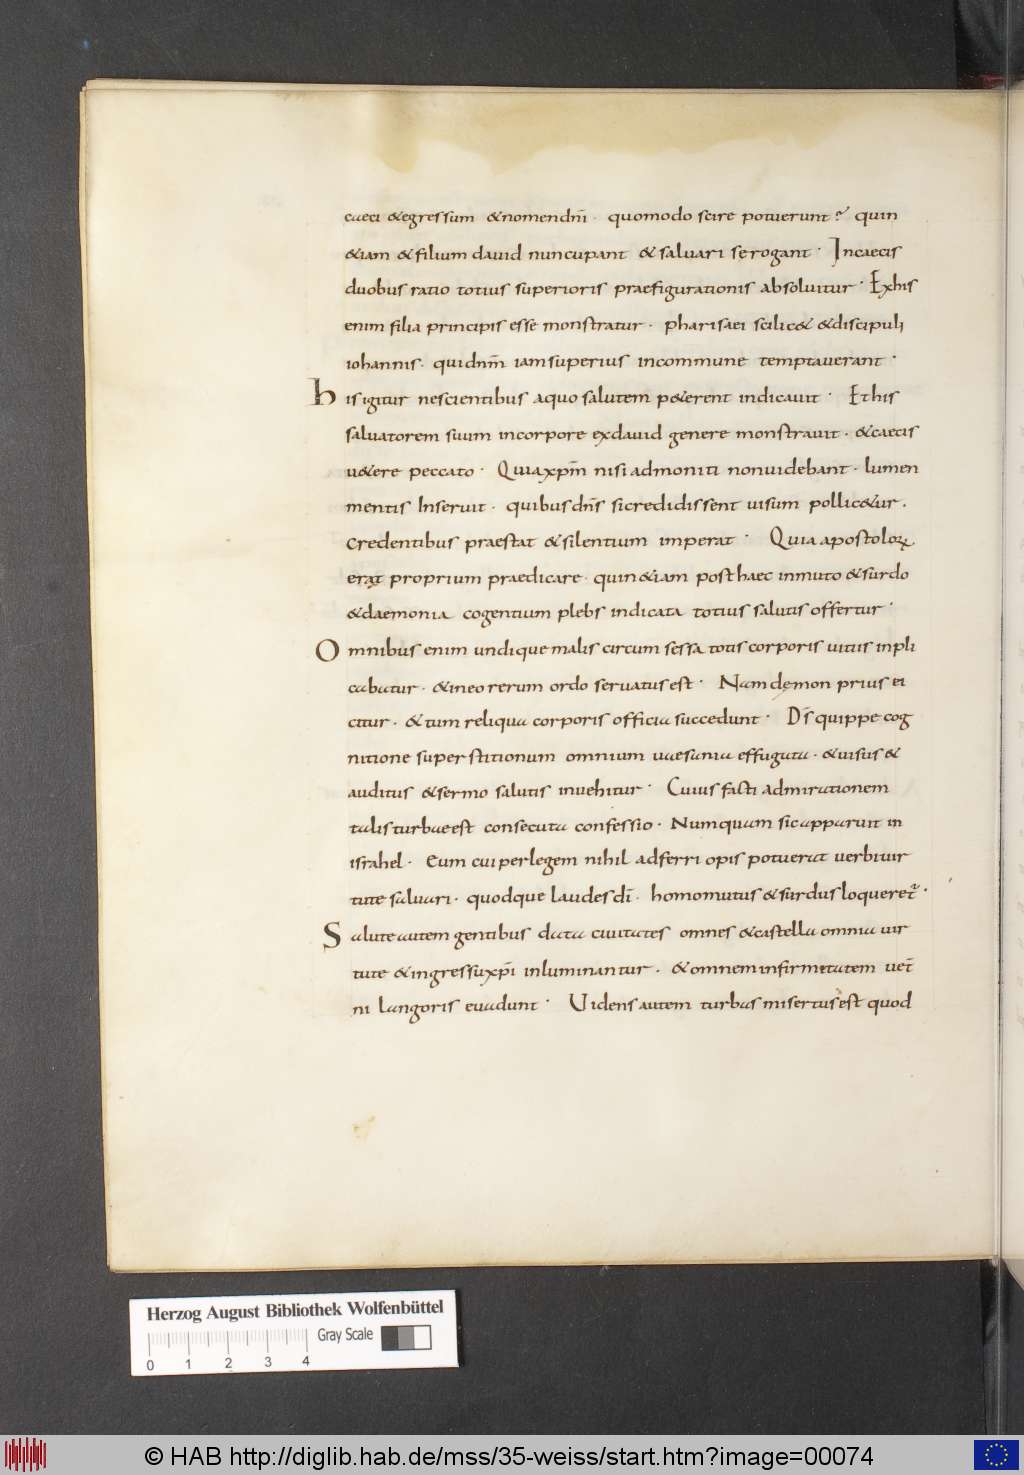 caeci &egressum &nomendn̄i · quomodo scire potuerunt? quin
&iam & filium dauid nuncupant & saluari se rogant · Incaecis
duobus ratio totius superioris praefigurationis absoluitur · Exhis
enim filia principis esse monstratur · pharisaei scilic& &discipuli
iohannis · quidnm̄ iamsuperius incommune temptauerant ·
his igitur nescientibus aquo salutem p&erent indicauit · Ethis
saluatorem suum incorpore exdauid genere monstrauit · &caecis
u&ere peccato · Quiaxpm̄ nisi admoniti nonuidebant · lumen
mentis Inseruit · quibusdn̄s sicredidissent uisum pollic&ur ·
credentibus praestat &silentium imperat · Quia apostoloꝝ
erat proprium praedicare · quin&iam posthaec inmuto &surdo
&daemonia cogentium plebs indicata totius salutis offertur ·
Omnibus enim undique malis circumsessa totis corporis uitiis inpli
cabatur · &ineo rerum ordo seruatus est · Nam dęmon prius ei
citur · & tum reliqua corporis officia succedunt · Dn̄s quippe cog
nitione superstitionum omnium uaesania effugata · &uisus &
auditus &sermo salutis inuehitur · Cuius facti admirationem
talis turbae est consecuta confessio · Numquam sic apparuit in
israhel · Eum cui per legem nihil adferri opis potuerat uerbi uir
tute saluari · quodque laudes dī · homo mutus & surdus loqueret᷑ ·
Salute autem gentibus data ciuitates omnes &castella omnia uir
tute &ingressuxpī inluminantur · &omnem infirmitatem uet̄
ni langoris euadunt · Uidens autem turbas misertus est quod
Herzog August Bibliothek Wolfenbüttel
Gray Scale
0 1 2 3 4
© HAB http://diglib.hab.de/mss/35-weiss/start.htm?image=00074